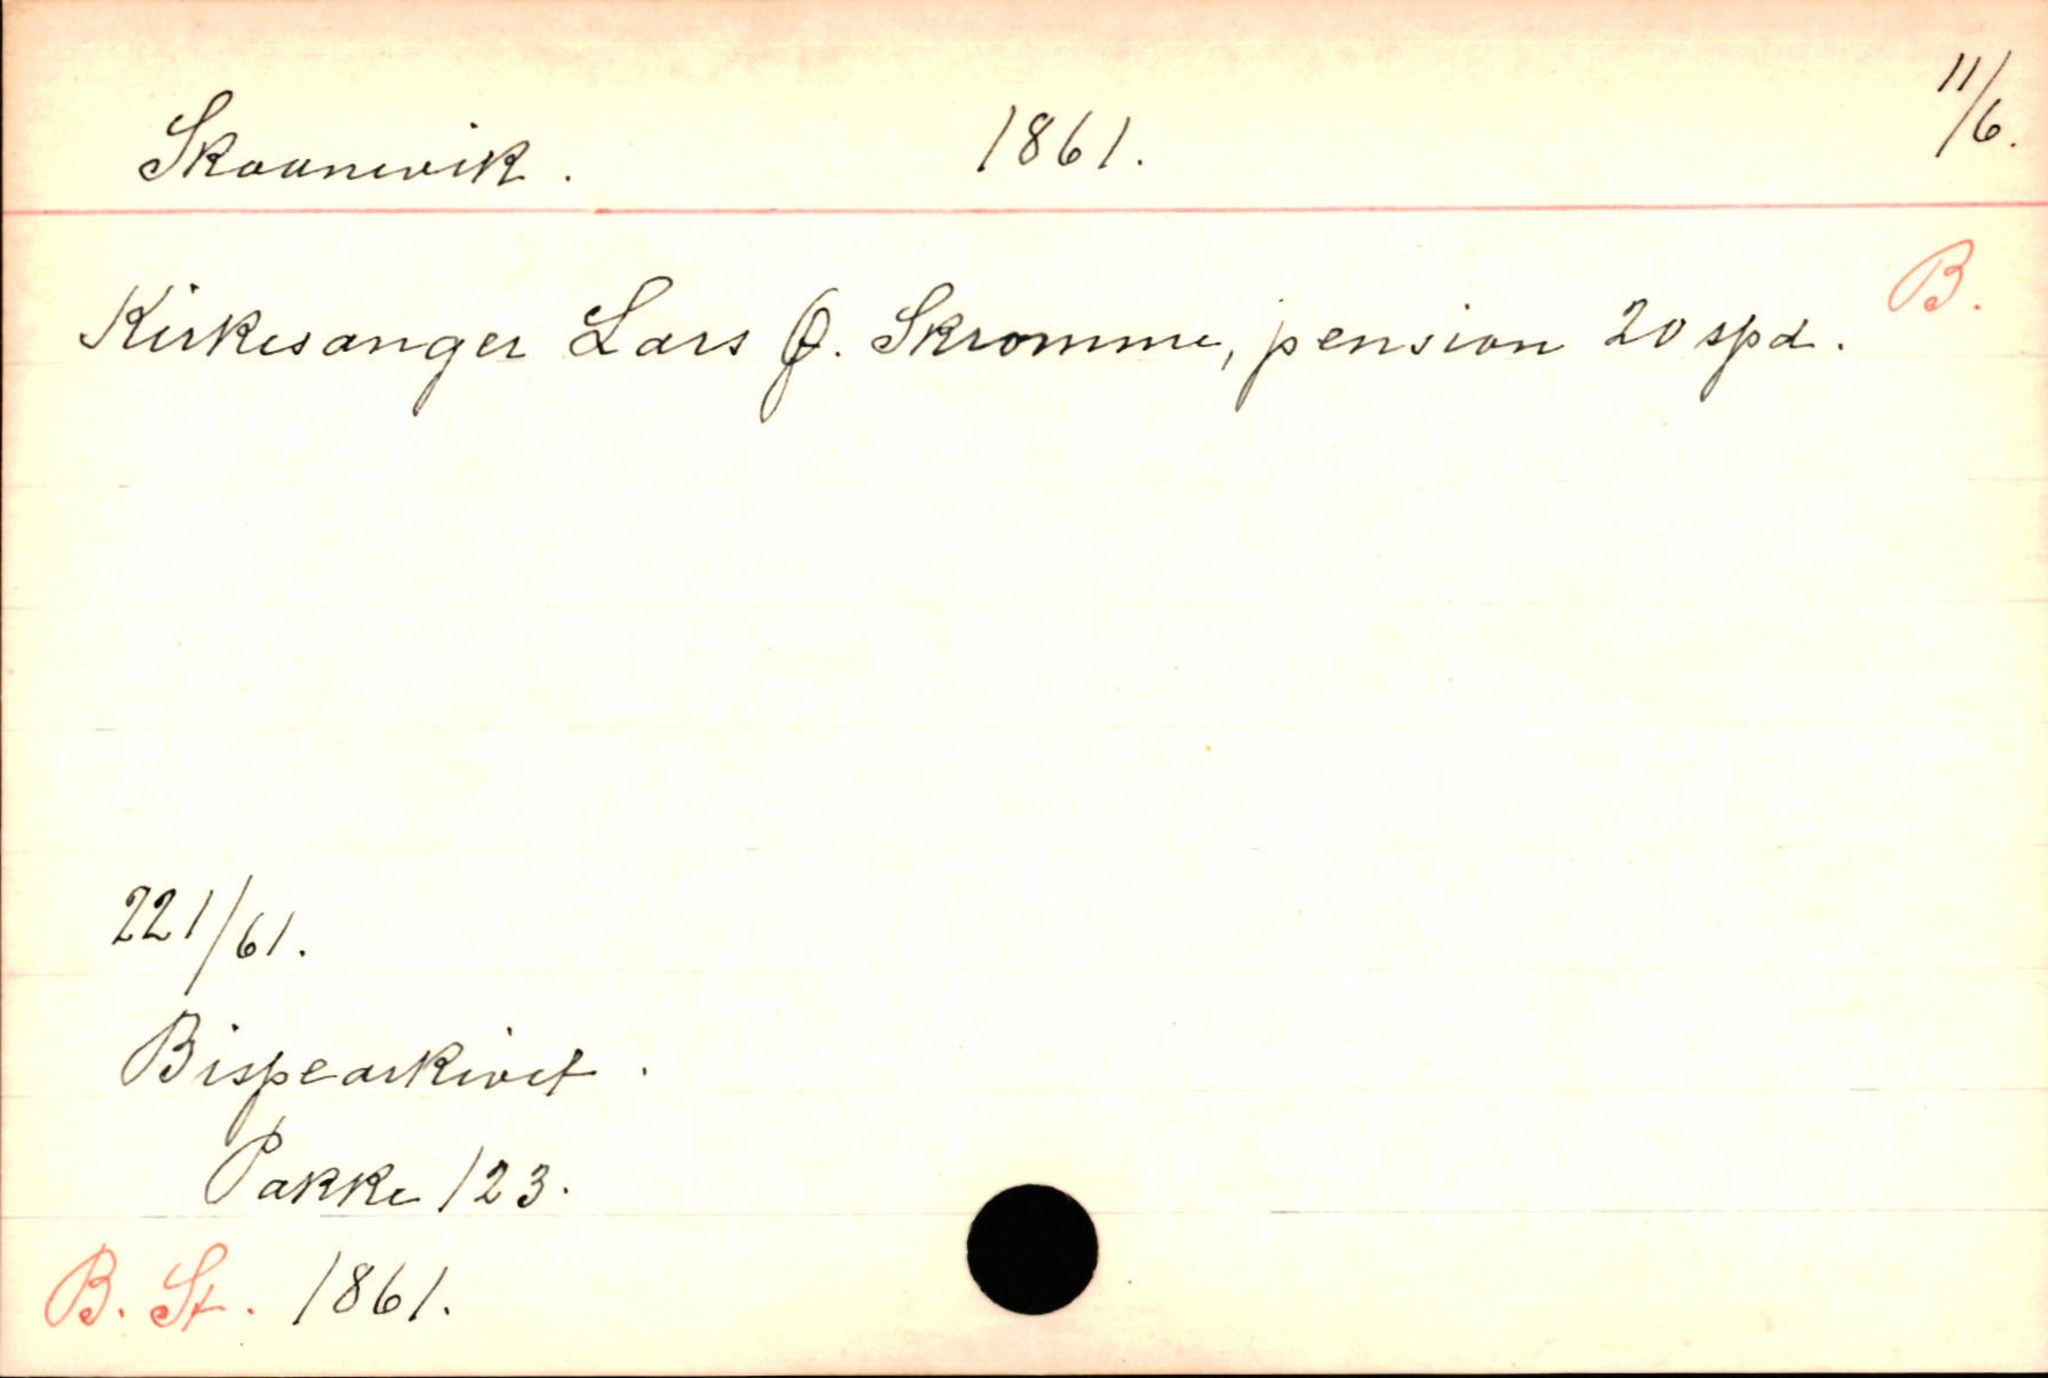 Skaanevik. 1861. 11/6.
B.
Kirkesanger Lars J. Skromme, pension 20 spd.
221/61.
Bispearkivet.
Pakke 123.
B. St. 1861.